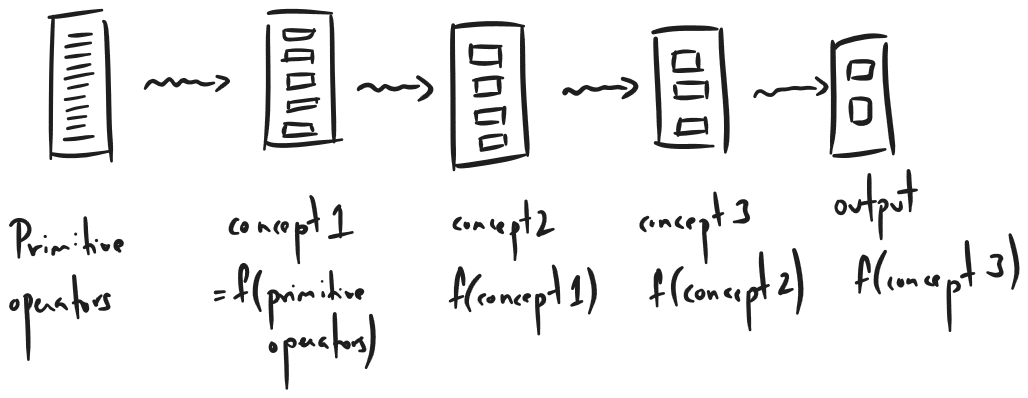 Primitive
operators
concept 1
= f(primitive
operators)
concept 2
f(concept 1)
concept 3
f(concept 2)
output
f(concept 3)